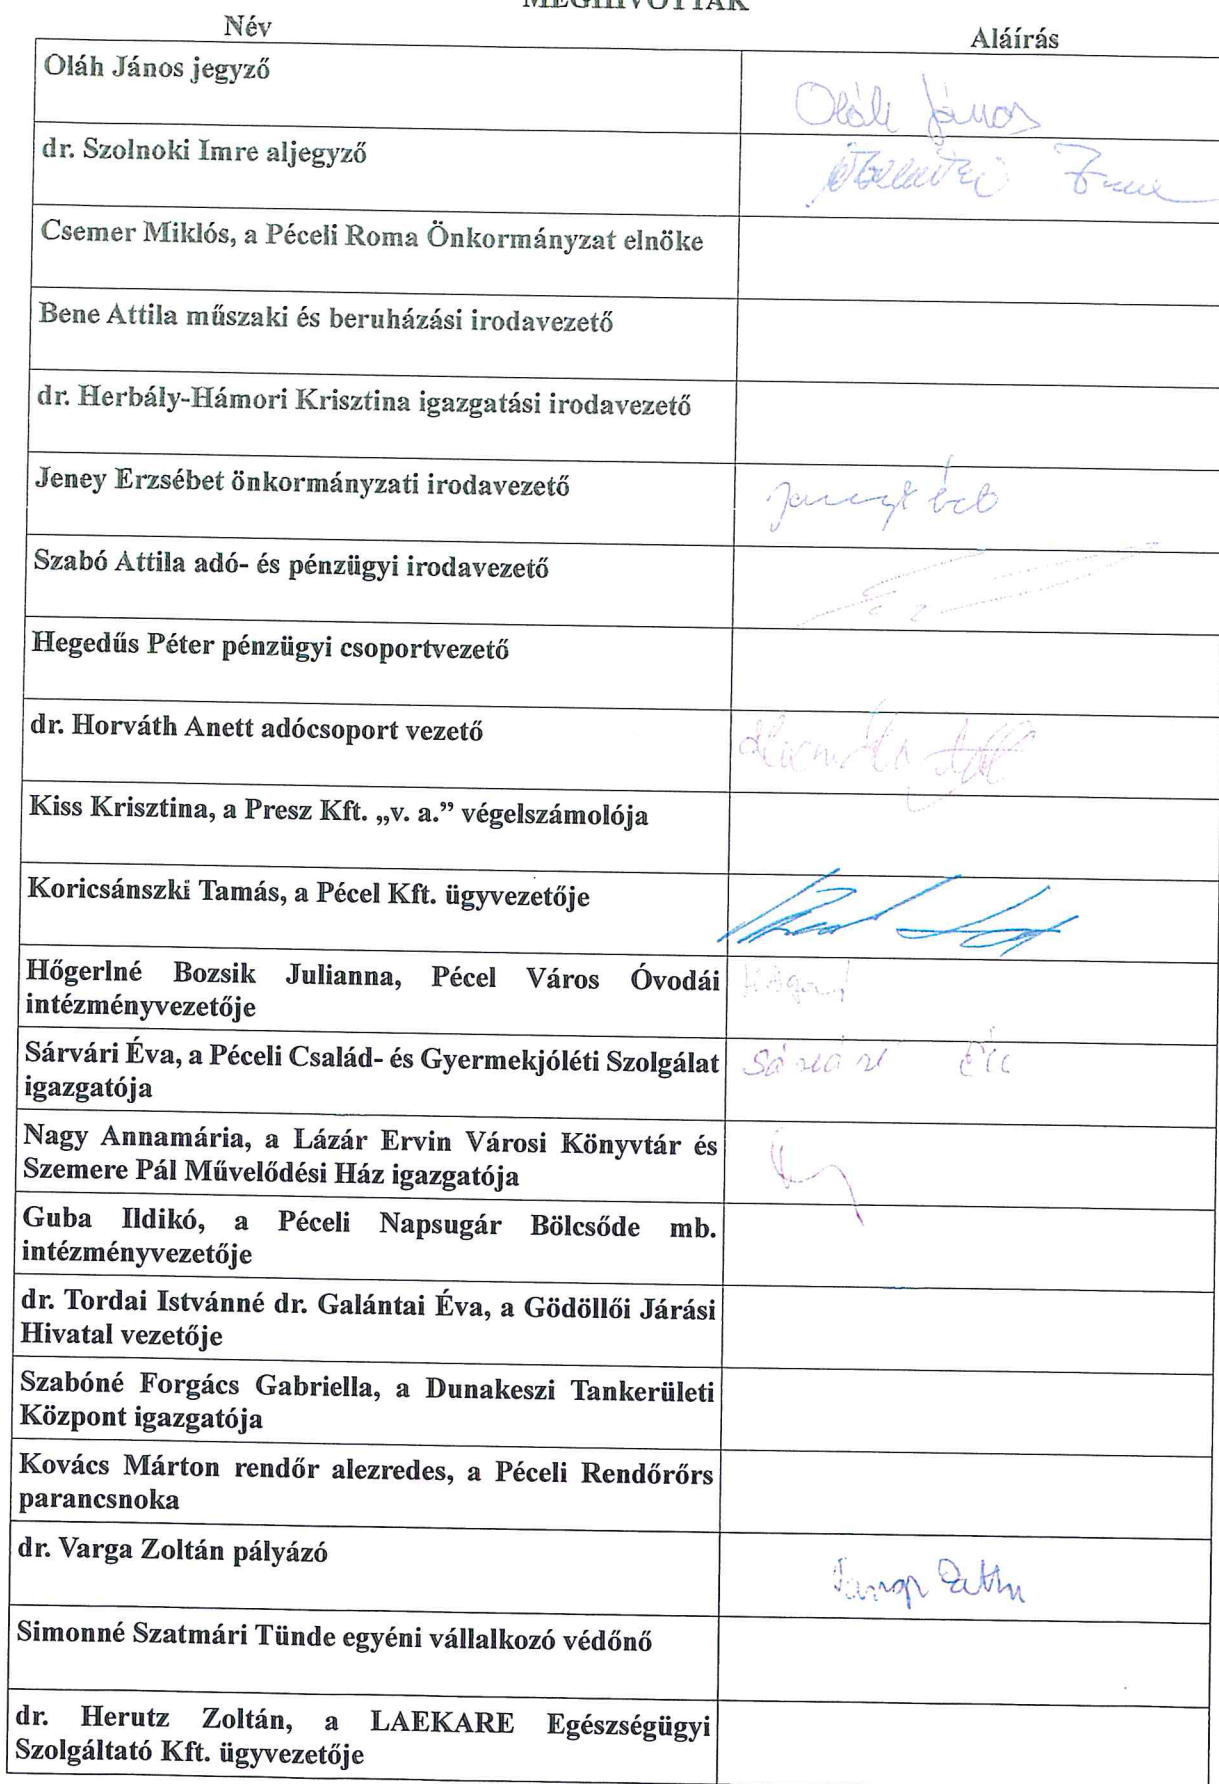 MEGHÍVOTTAK
Név Aláírás
Oláh János jegyző
Oláh János
dr. Szolnoki Imre aljegyző
Szolnoki Imre
Csemer Miklós, a Péceli Roma Önkormányzat elnöke
Bene Attila műszaki és beruházási irodavezető
dr. Herbály-Hámori Krisztina igazgatási irodavezető
Jeney Erzsébet önkormányzati irodavezető
Szabó Attila adó- és pénzügyi irodavezető
Hegedűs Péter pénzügyi csoportvezető
dr. Horváth Anett adócsoport vezető
Kiss Krisztina, a Presz Kft. „v. a.” végelszámolója
Koricsánszki Tamás, a Pécel Kft. ügyvezetője
Hőgerlné Bozsik Julianna, Pécel Város Óvodái
intézményvezetője
Sárvári Éva, a Péceli Család- és Gyermekjóléti Szolgálat
igazgatója
Sárvári Éva
Nagy Annamária, a Lázár Ervin Városi Könyvtár és
Szemere Pál Művelődési Ház igazgatója
Guba Ildikó, a Péceli Napsugár Bölcsőde mb.
intézményvezetője
dr. Tordai Istvánné dr. Galántai Éva, a Gödöllői Járási
Hivatal vezetője
Szabóné Forgács Gabriella, a Dunakeszi Tankerületi
Központ igazgatója
Kovács Márton rendőr alezredes, a Péceli Rendőrőrs
parancsnoka
dr. Varga Zoltán pályázó
Simonné Szatmári Tünde egyéni vállalkozó védőnő
dr. Herutz Zoltán, a LAEKARE Egészségügyi
Szolgáltató Kft. ügyvezetője